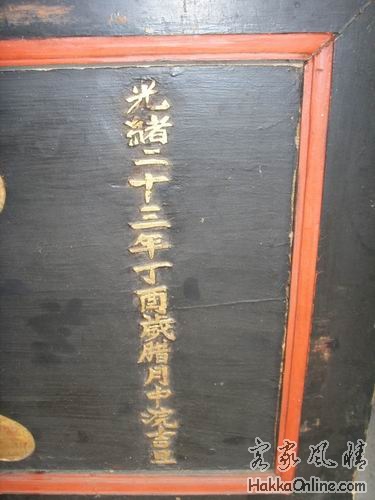 光緒二十三年丁酉歲腊月中浣吉旦
客家風情
HakkaOnline.com